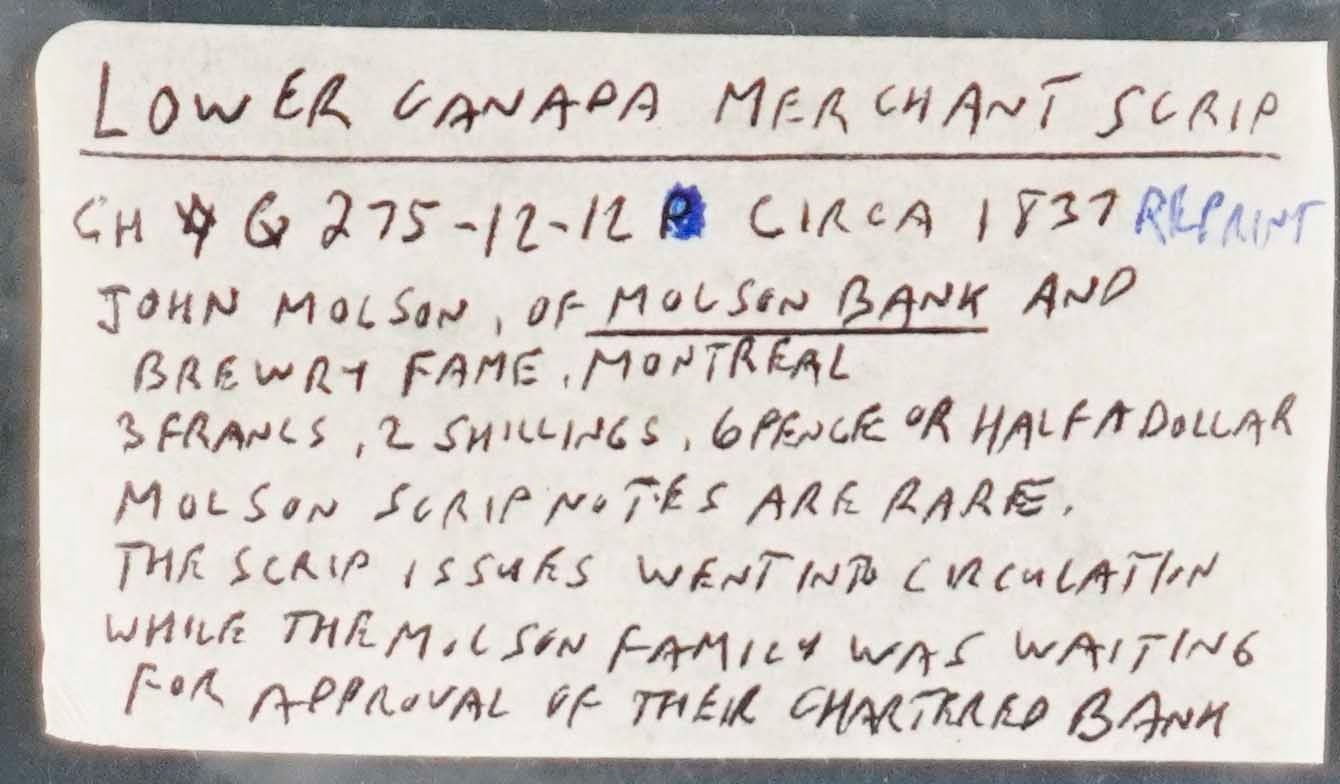 LOWER CANADA MERCHANT SCRIP
CH # Q 275-12-12 R CIRCA 1837 REPRINT
JOHN MOLSON, OF MOLSON BANK AND
BREWRY FAME, MONTREAL
3 FRANCS, 2 SHILLINGS, 6 PENCE OR HALF A DOLLAR
MOLSON SCRIP NOTES ARE RARE.
THE SCRIP ISSUES WENT INTO CIRCULATION
WHILE THE MOLSON FAMILY WAS WAITING
FOR APPROVAL OF THEIR CHARTERED BANK